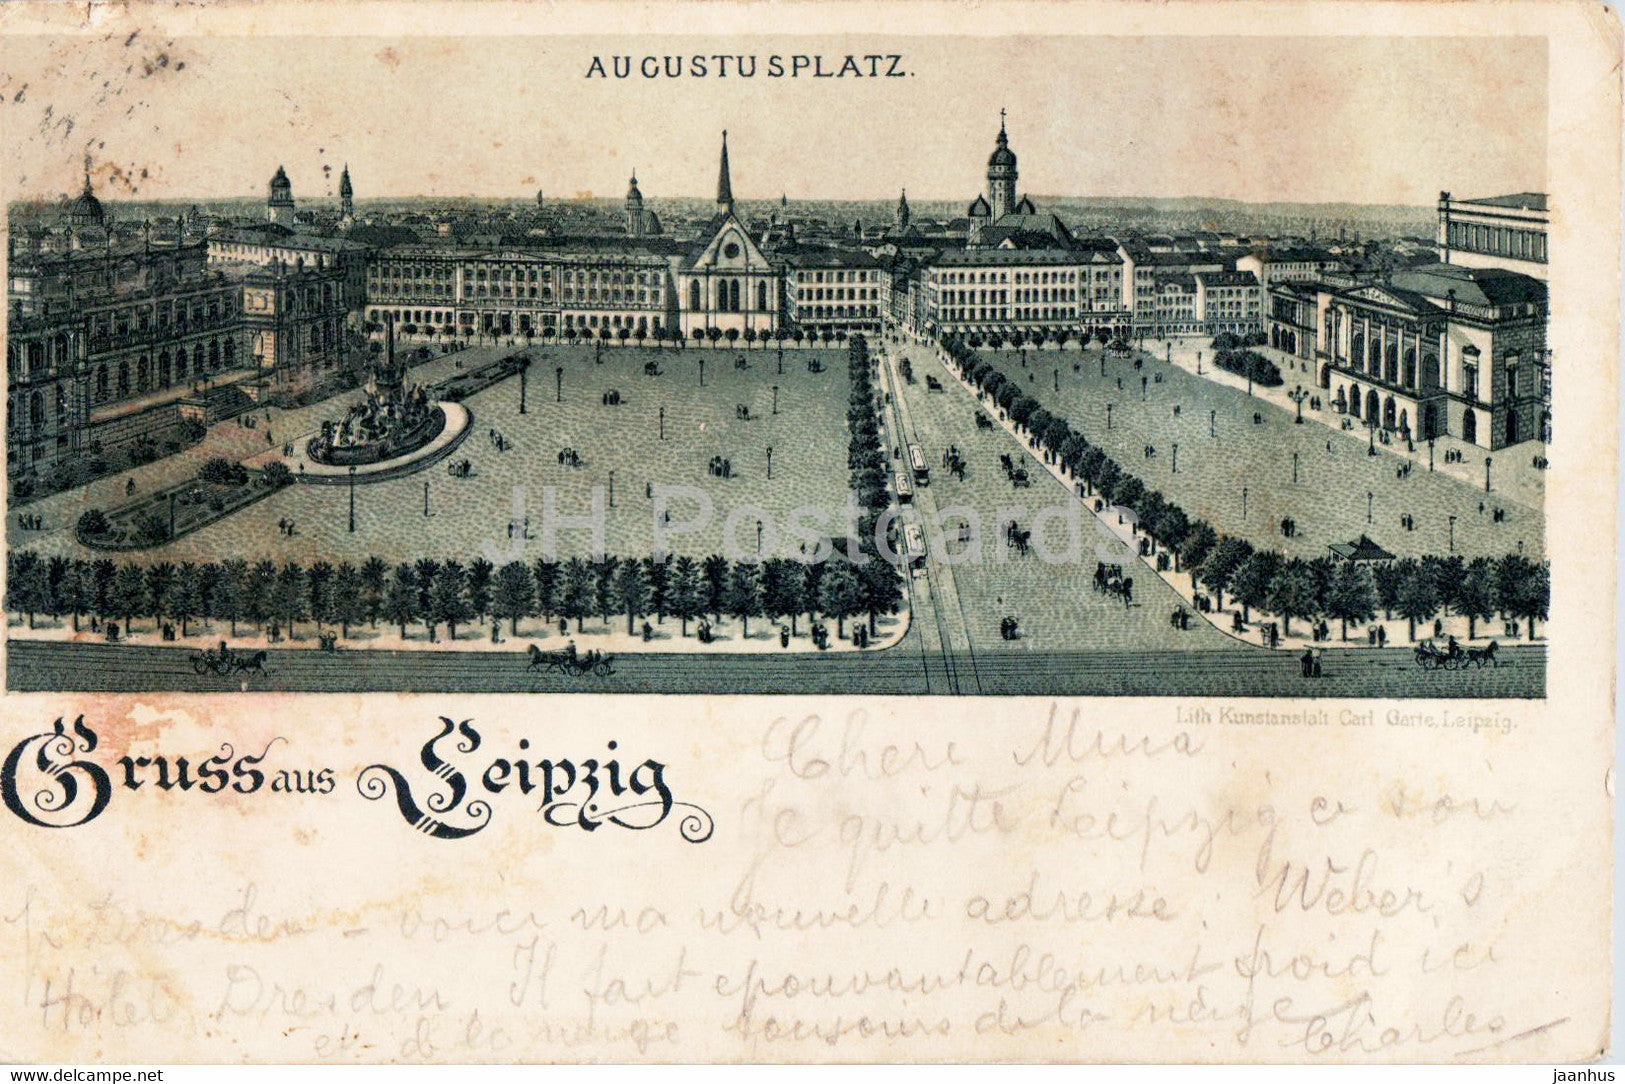 AUGUSTUSPLATZ.
JH Postcards
Lith Kunstanstalt Carl Garte, Leipzig.
Gruss aus Leipzig
Chere
Je quitte Leipzig ce soir
pr Dresden – voici ma nouvelle adresse: Weber's
Hôtel, Dresden Il fait epouvantablement froid ici
et de la neige toujours de la neige
Charles
Bid at www.delcampe.net
jaanhus